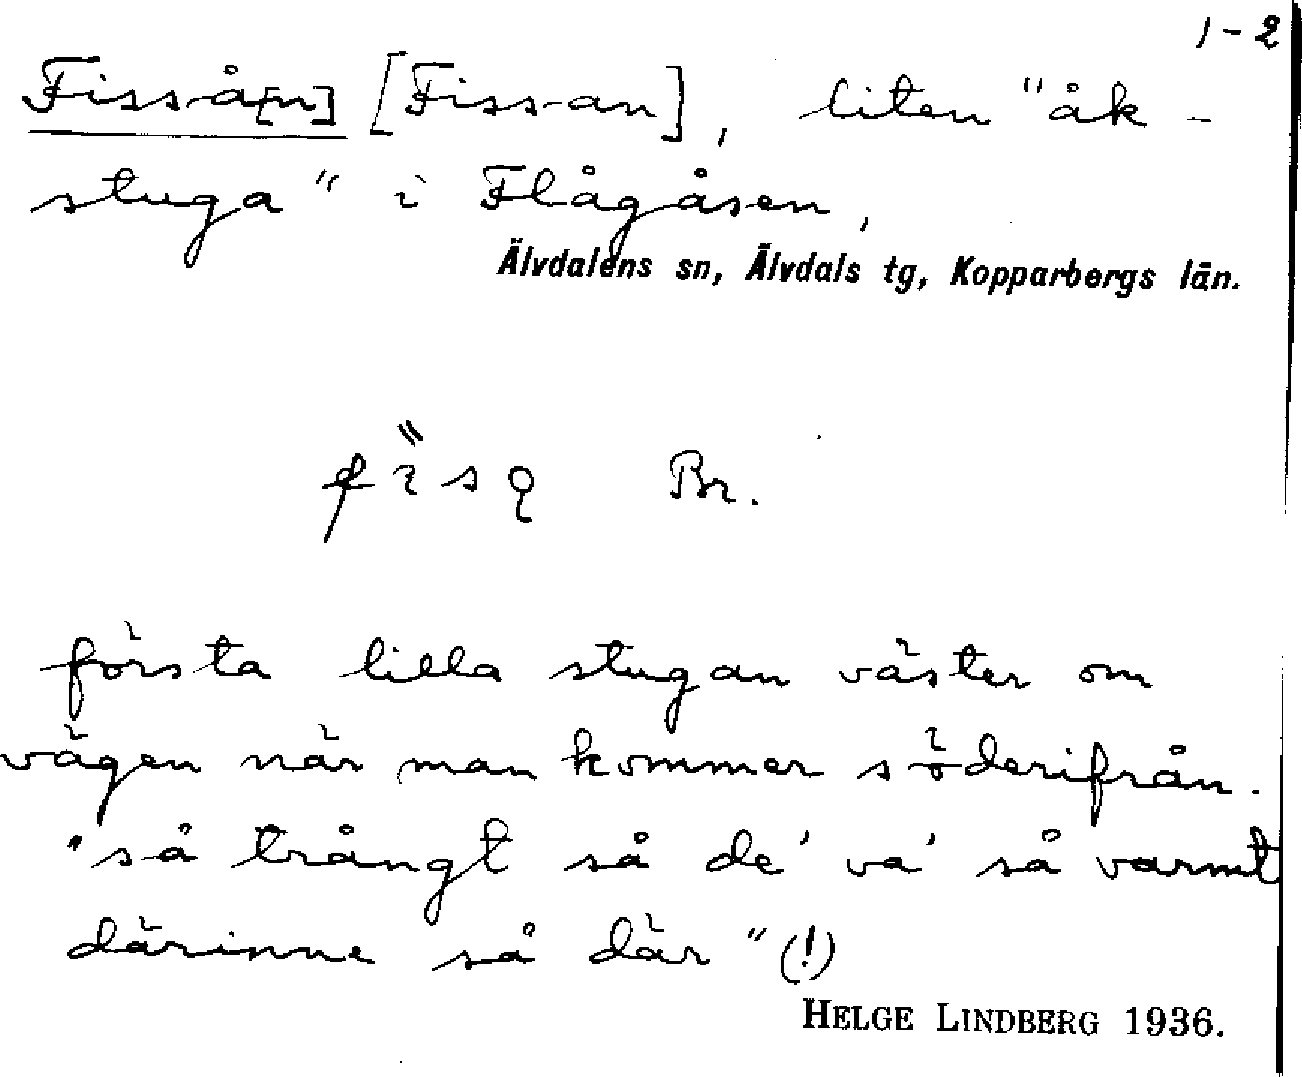 1-2
Fisså[n] [Fissan], liten "åk-
stuga" i Flågåsen,
Älvdalens sn, Älvdals tg, Kopparbergs län.
Br.
första lilla stugan väster om
vägen när man kommer söderifrån.
"så trångt så de' va' så varmt
därinne så där" (!)
HELGE LINDBERG 1936.